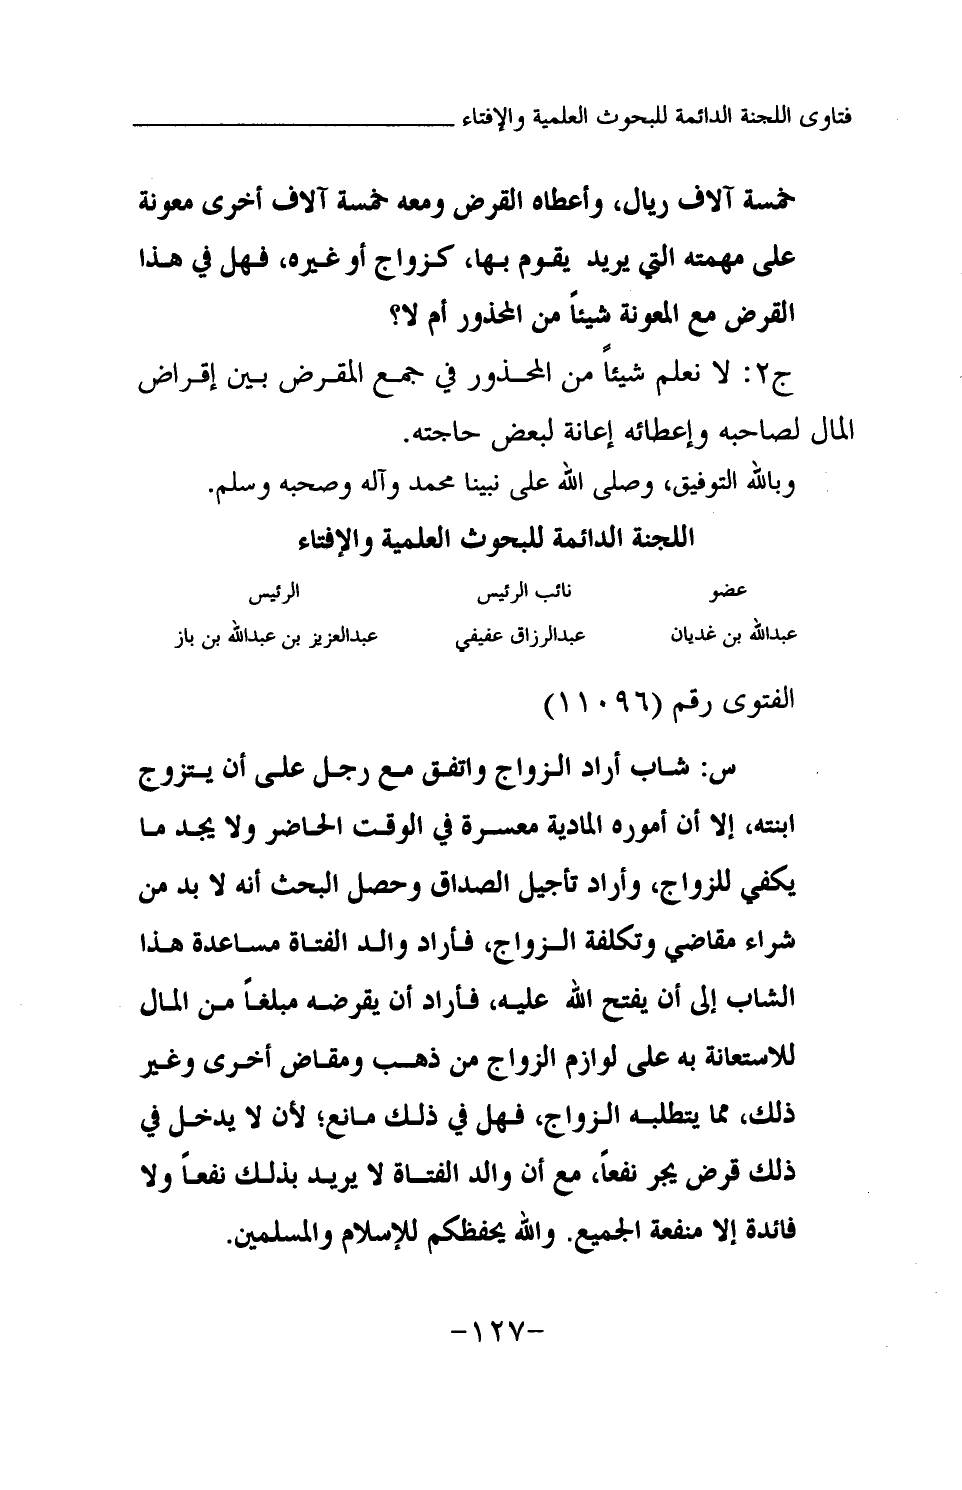 فتاوى اللجنة الدائمة للبحوث العلمية والإفتاء
خمسة آلاف ريال، وأعطاه القرض ومعه خمسة آلاف أخرى معونة
على مهمته التي يريد يقوم بها، كزواج أو غيره، فهل في هذا
القرض مع المعونة شيئاً من المحذور أم لا؟
ج٢: لا نعلم شيئاً من المحذور في جمع المقرض بين إقراض
المال لصاحبه وإعطائه إعانة لبعض حاجته.
وبالله التوفيق، وصلى الله على نبينا محمد وآله وصحبه وسلم.
اللجنة الدائمة للبحوث العلمية والإفتاء
عضو نائب الرئيس الرئيس
عبدالله بن غديان عبدالرزاق عفيفي عبدالعزيز بن عبدالله بن باز
الفتوى رقم (١١٠٩٦)
س: شاب أراد الزواج واتفق مع رجل على أن يتزوج
ابنته، إلا أن أموره المادية معسرة في الوقت الحاضر ولا يجد ما
يكفي للزواج، وأراد تأجيل الصداق وحصل البحث أنه لا بد من
شراء مقاضي وتكلفة الزواج، فأراد والد الفتاة مساعدة هذا
الشاب إلى أن يفتح الله عليه، فأراد أن يقرضه مبلغاً من المال
للاستعانة به على لوازم الزواج من ذهب ومقاض أخرى وغير
ذلك، مما يتطلبه الزواج، فهل في ذلك مانع؛ لأن لا يدخل في
ذلك قرض يجر نفعاً، مع أن والد الفتاة لا يريد بذلك نفعاً ولا
فائدة إلا منفعة الجميع. والله يحفظكم للإسلام والمسلمين.
-١٢٧-